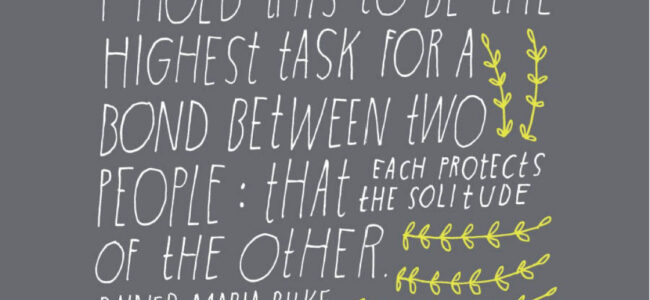 I HOLD tHIS tO BE tHE
HIGHEST tASK FOR A
BOND BEtWEEN tWO
PEOPLE : tHAt EACH PROTECTS
tHE SOLITUDE
OF tHE OtHER.
RAINER MARIA RILKE